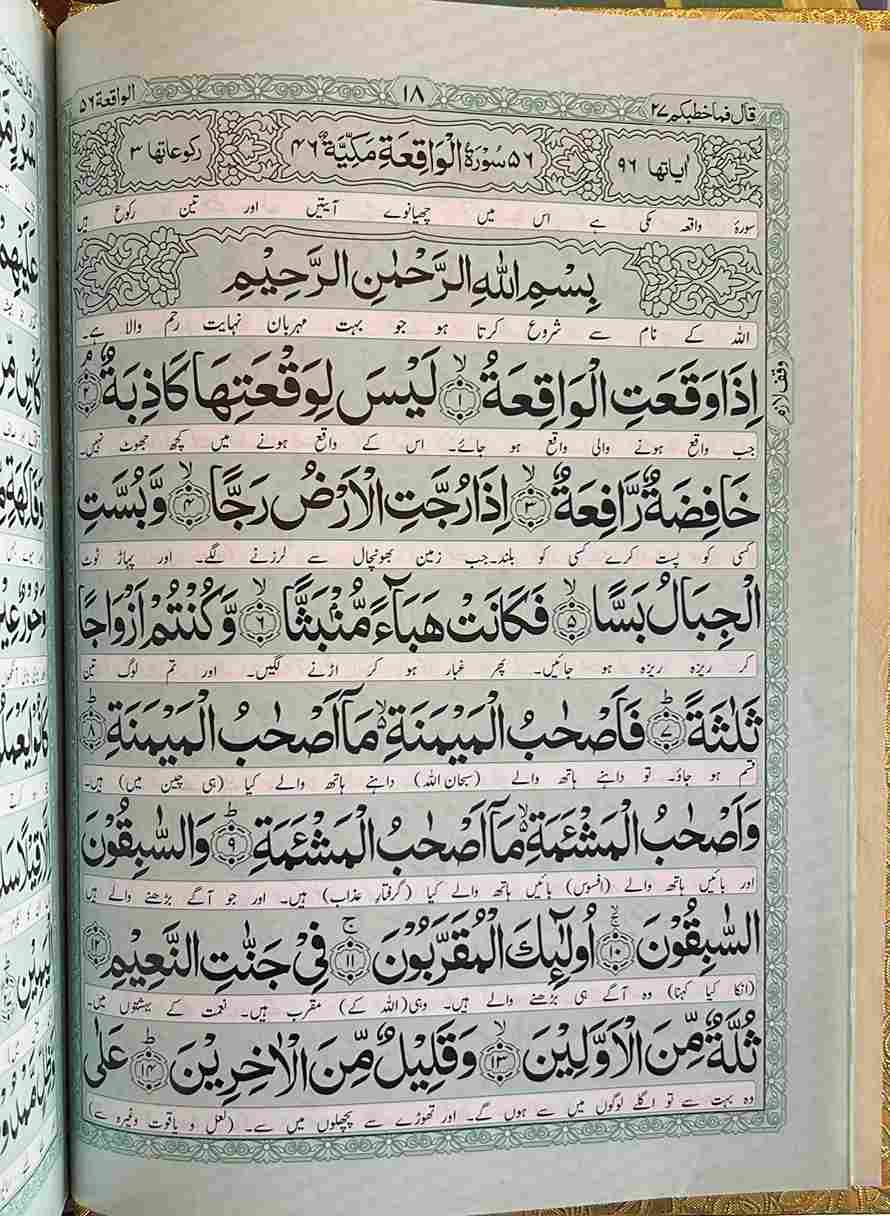 قال فما خطبكم ٢٧
١٨
الواقعة ٥٦
اٰياتها ٩٦
٥٦ سُوْرَةُ الْوَاقِعَةِ مَكِّيَّةٌ ٤٦
ركوعاتها ٣
سورۂ واقعہ مکی ہے اس میں چھیانوے آیتیں اور تین رکوع ہیں
بِسْمِ اللّٰهِ الرَّحْمٰنِ الرَّحِيْمِ
اللہ کے نام سے شروع کرتا ہو جو بہت مہربان نہایت رحم والا ہے۔
وقف لازم
اِذَا وَقَعَتِ الْوَاقِعَةُ ۙ﴿١﴾ لَيْسَ لِوَقْعَتِهَا كَاذِبَةٌ ۘ﴿٢﴾
جب واقع ہونے والی واقع ہو جائے۔ اس کے واقع ہونے میں کچھ جھوٹ نہیں۔
خَافِضَةٌ رَّافِعَةٌ ۙ﴿٣﴾ اِذَا رُجَّتِ الْاَرْضُ رَجًّا ۙ﴿٤﴾ وَّ بُسَّتِ
کسی کو پست کرے کسی کو بلند۔ جب زمین بھونچال سے لرزنے لگے۔ اور پہاڑ ٹوٹ
الْجِبَالُ بَسًّا ۙ﴿٥﴾ فَكَانَتْ هَبَآءً مُّنْۢبَثًّا ۙ﴿٦﴾ وَّ كُنْتُمْ اَزْوَاجًا
کر ریزہ ریزہ ہو جائیں۔ پھر غبار ہو کر اڑنے لگیں۔ اور تم لوگ تین
ثَلٰثَةً ؕ﴿٧﴾ فَاَصْحٰبُ الْمَيْمَنَةِ ۙ۬ مَاۤ اَصْحٰبُ الْمَيْمَنَةِ ؕ﴿٨﴾
قسم ہو جاؤ۔ تو داہنے ہاتھ والے (سبحان اللہ) داہنے ہاتھ والے کیا (ہی چین میں) ہیں۔
وَ اَصْحٰبُ الْمَشْـَٔمَةِ ۙ۬ مَاۤ اَصْحٰبُ الْمَشْـَٔمَةِ ؕ﴿٩﴾ وَ السّٰبِقُوْنَ
اور بائیں ہاتھ والے (افسوس) بائیں ہاتھ والے کیا (گرفتار عذاب) ہیں۔ اور جو آگے بڑھنے والے ہیں
السّٰبِقُوْنَ ۚۙ﴿١٠﴾ اُولٰٓئِكَ الْمُقَرَّبُوْنَ ۚ﴿١١﴾ فِيْ جَنّٰتِ النَّعِيْمِ ﴿١٢﴾
(انکا کیا کہنا) وہ آگے ہی بڑھنے والے ہیں۔ وہی (اللہ کے) مقرب ہیں۔ نعمت کے بہشتوں میں۔
ثُلَّةٌ مِّنَ الْاَوَّلِيْنَ ۙ﴿١٣﴾ وَ قَلِيْلٌ مِّنَ الْاٰخِرِيْنَ ؕ﴿١٤﴾ عَلٰى
وہ بہت سے تو اگلے لوگوں میں سے ہوں گے۔ اور تھوڑے سے پچھلوں میں سے۔ (لعل و یاقوت وغیرہ سے)